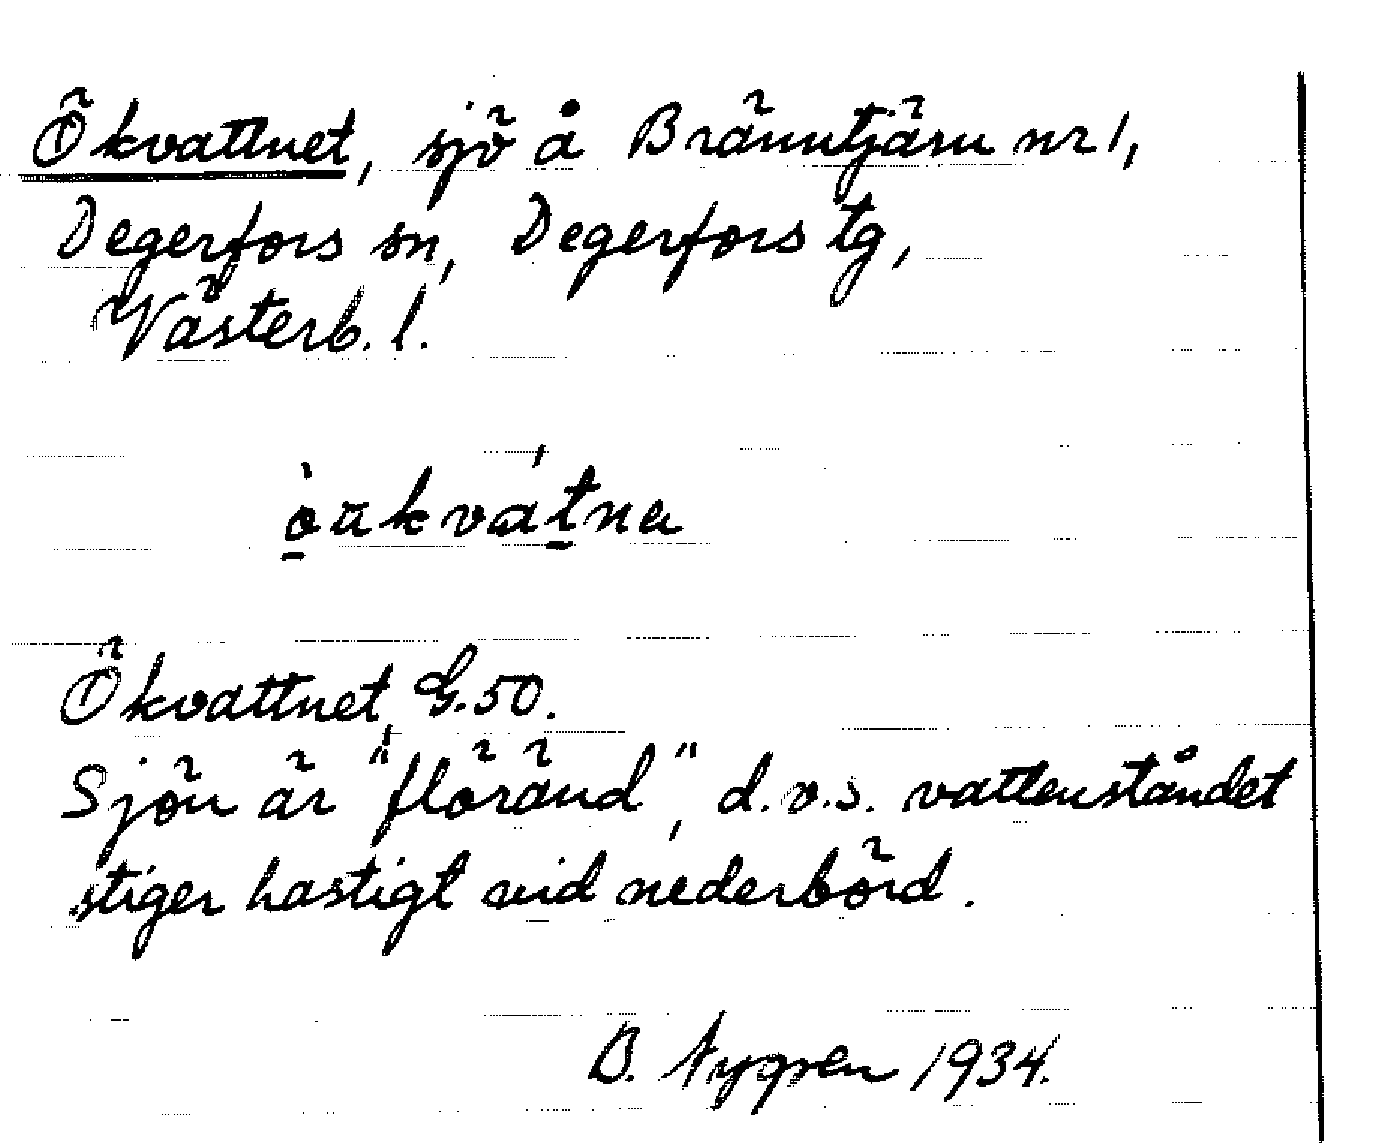 Ökvattnet, sjö å Bränntjärn nr 1,
Degerfors sn, Degerfors tg,
Västerb. l.
Ökvattnet, G.50.
Sjön är "flöränd", d.v.s. vattenståndet
stiger hastigt vid nederbörd.
B. Nygren 1934.